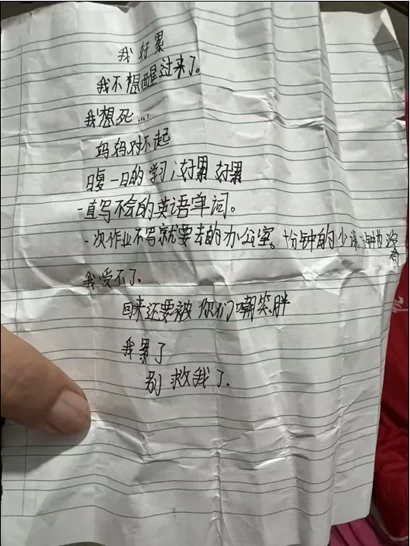 我好累
我不想醒过来了。
我想死...
妈妈对不起
日复一日的学习,好累 好累
一直写不会的英语单词。
一次作业不写就要去的办公室。十分钟的少
我受不了。
回来还要被你们嘲笑胖
我累了
别救我了。